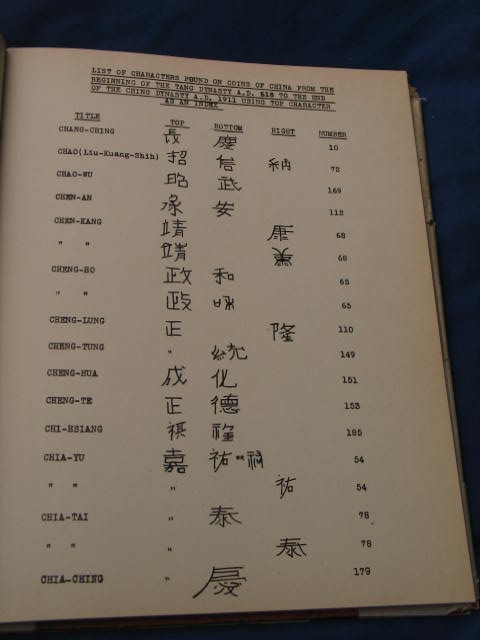 LIST OF CHARACTERS FOUND ON COINS OF CHINA FROM THE
BEGINNING OF THE TANG DYNASTY A.D. 618 TO THE END
OF THE CHING DYNASTY A.D. 1911 USING TOP CHARACTER
AS AN INDEX
TITLE TOP BOTTOM RIGHT NUMBER
CHANG-CHING 長 慶 10
CHAO(Liu-Kuang-Shih) 招 信 納 72
CHAO-WU 昭 武 169
CHEN-AN 承 安 112
CHEN-KANG 靖 康 68
" " 靖 68
CHENG-HO 政 和 65
" " 政 咊 65
CHENG-LUNG 正 隆 110
CHENG-TUNG " 統 149
CHENG-HUA 成 化 151
CHENG-TE 正 德 153
CHI-HSIANG 祺 祥 185
CHIA-YU 嘉 祐 54
" " " 祐 54
CHIA-TAI " 泰 78
" " " 泰 78
CHIA-CHING " 慶 179